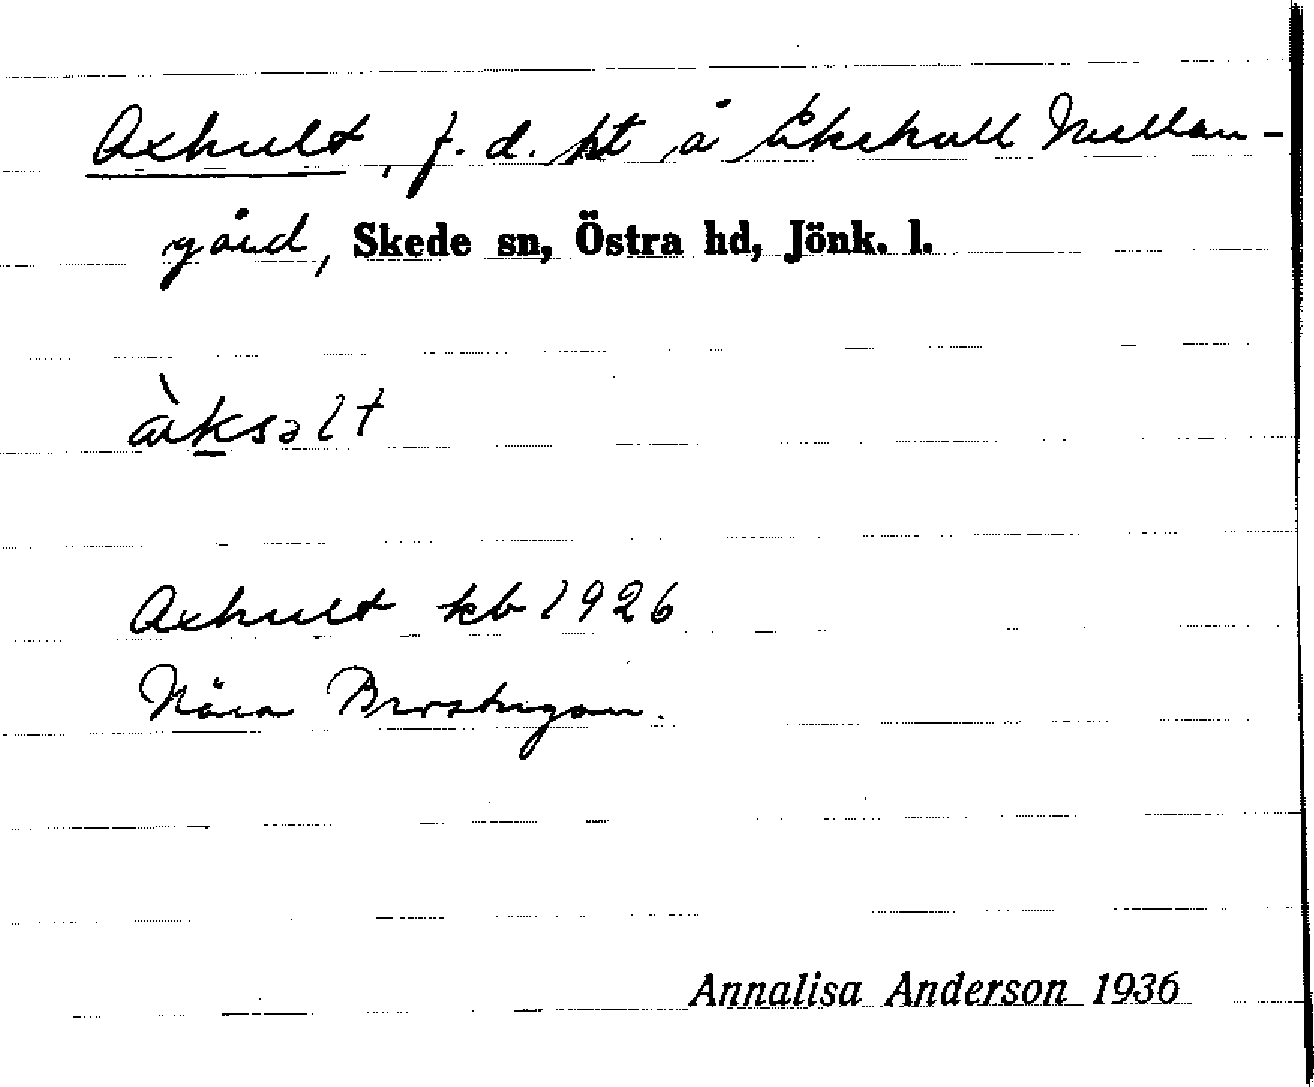 Axhult, f. d. ht å Åkehult Mellan-
gård, Skede sn, Östra hd, Jönk. l.
àksəlt
Axhult kb 1926
Nära Brostugan.
Annalisa Anderson 1936